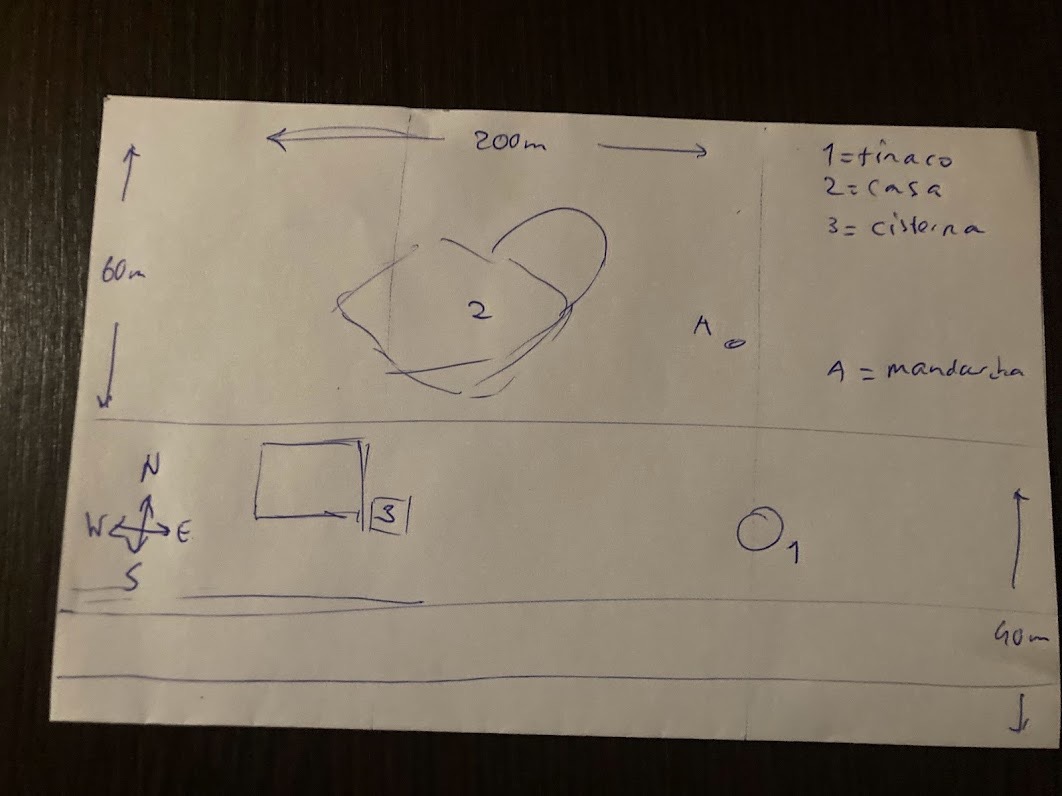 200m
1=tinaco
2=casa
3= cisterna
60m
2
A
A = mandarina
N
W E
S
3
1
40m